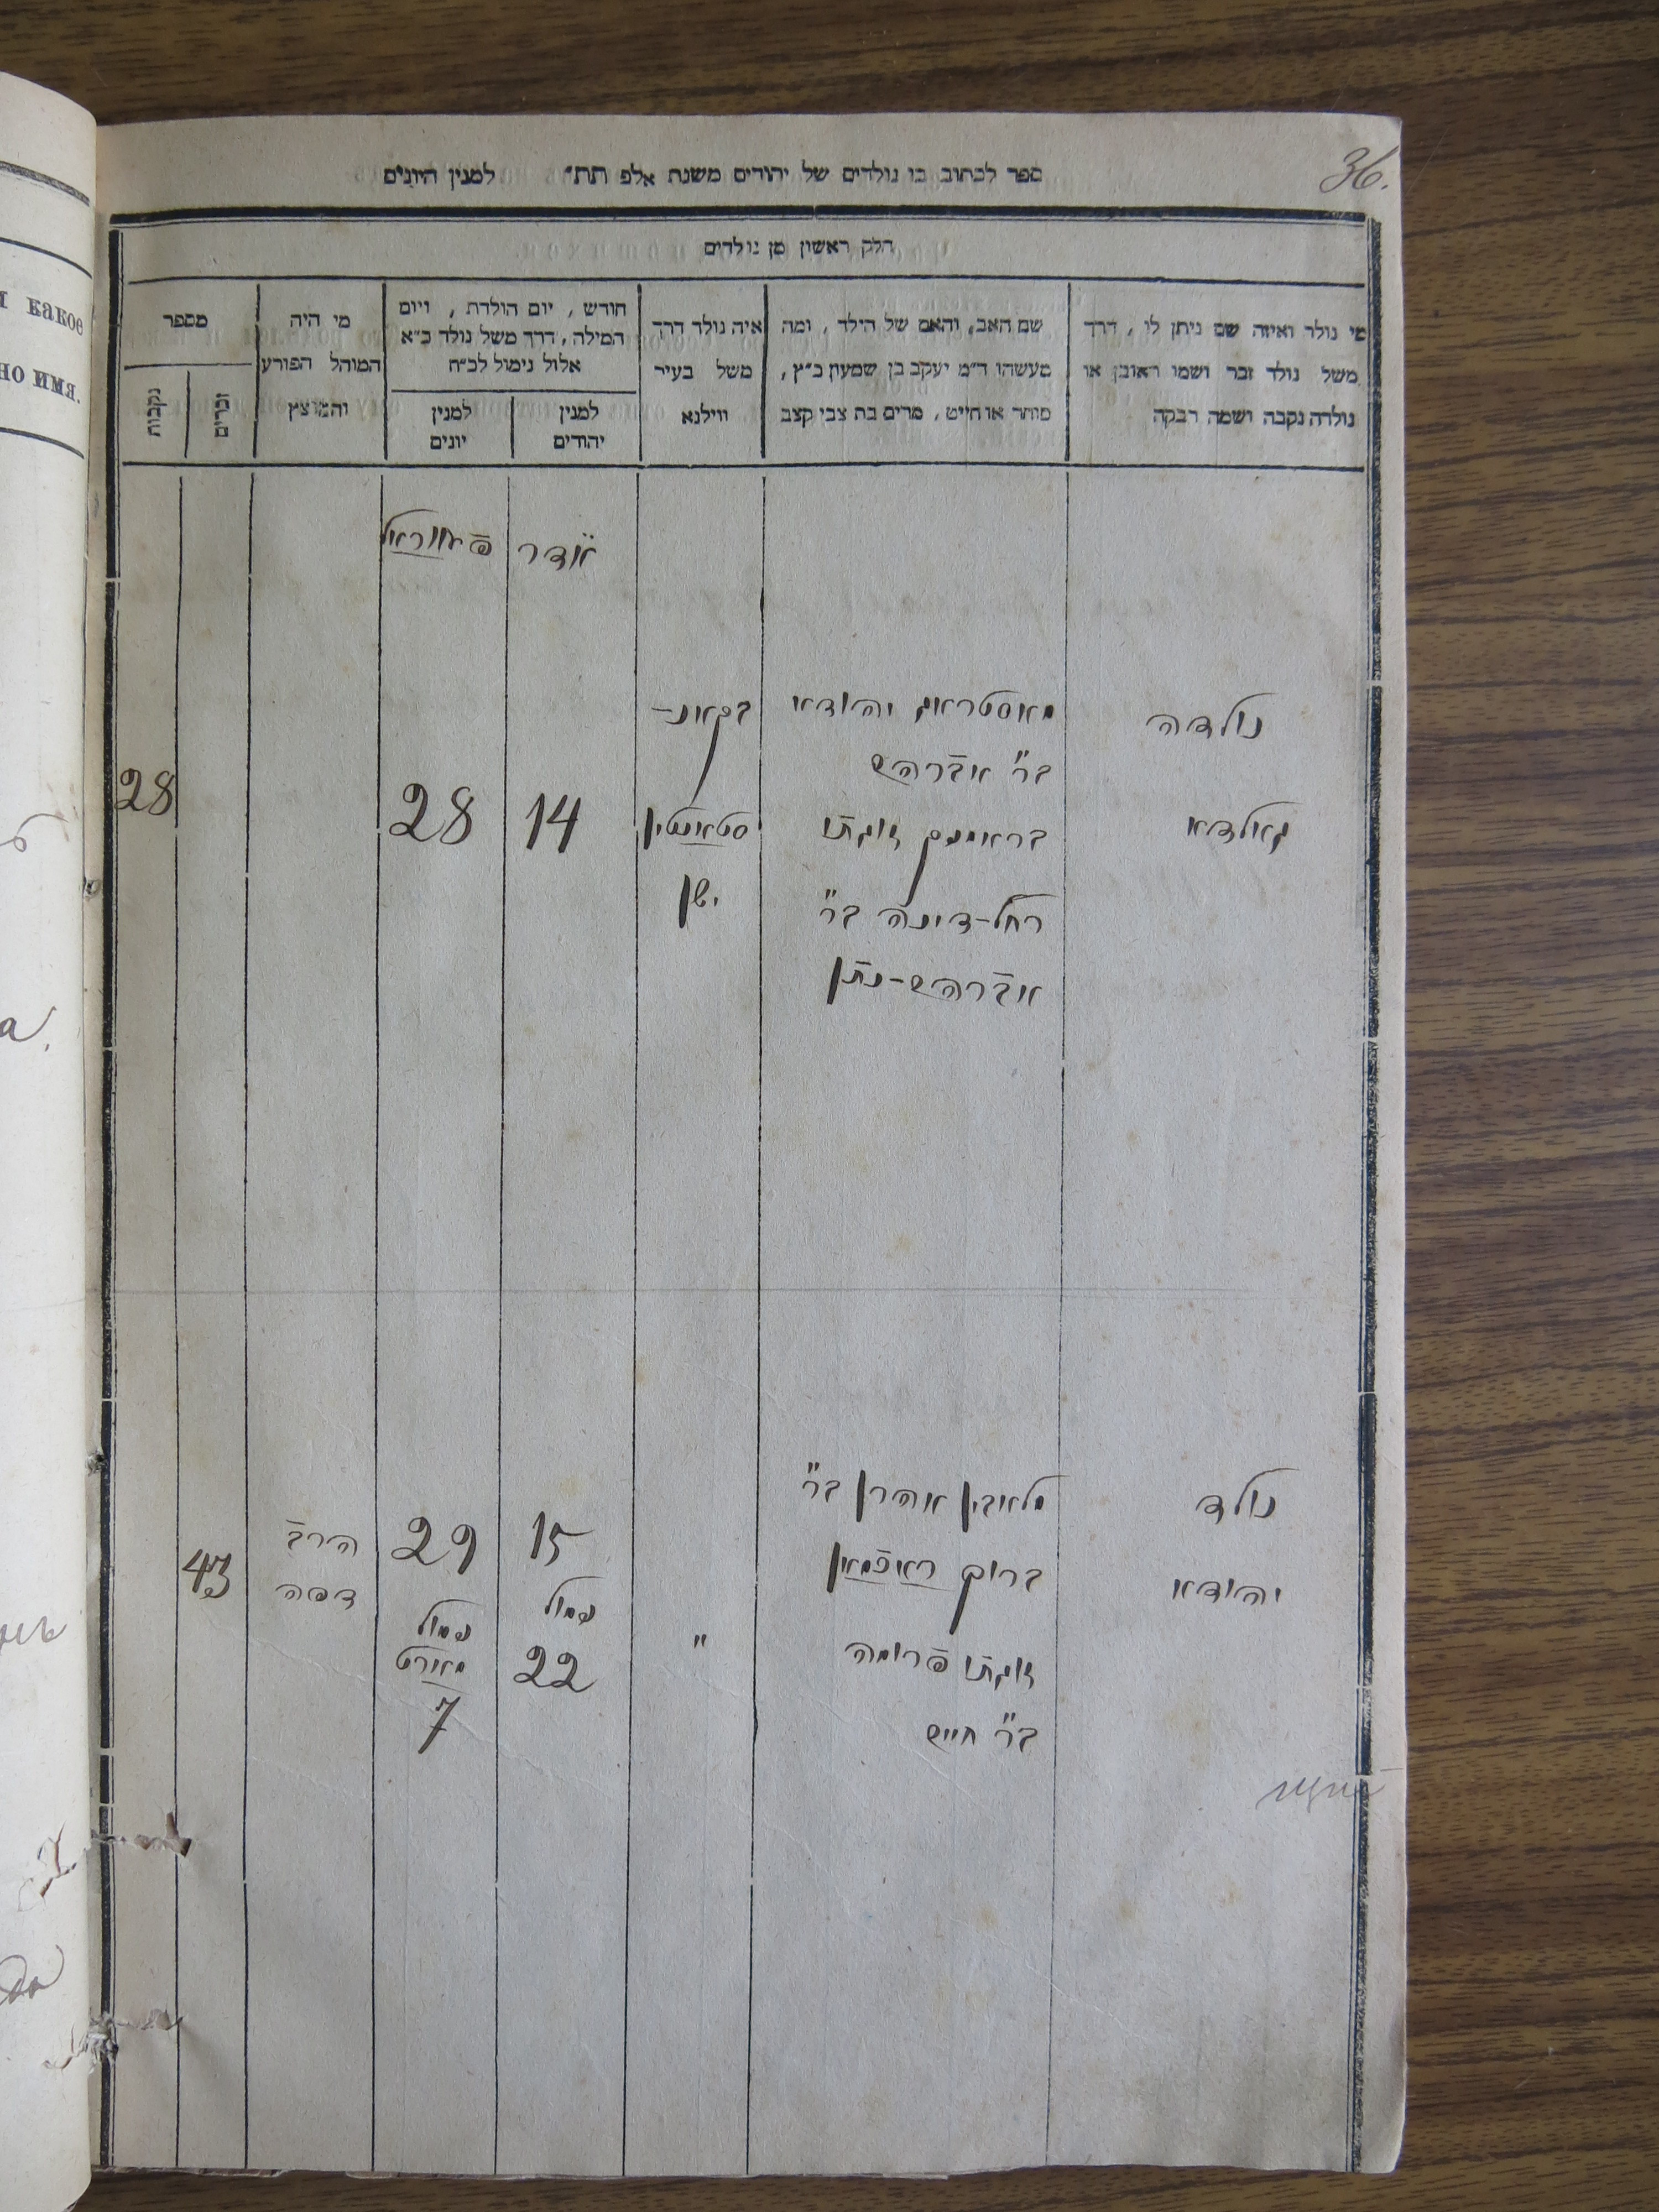 36.
ספר לכתוב בו נולדים של יהודים משנת אלפ תת״ למנין היונים
חלק ראשון מן נולדים
מי נולד ואיזה שם ניתן לו, דרך
משל נולד זכר ושמו ראובן או
נולדה נקבה ושמה רבקה
שם האב, והאם של הילד, ומה
מעשהו ד״מ יעקב בן שמעון כ״ץ,
סוחר או חייט, מרים בת צבי קצב
איה נולד דרך
משל בעיר
ווילנא
חודש, יום הולדת, ויום
המילה, דרך משל נולד כ״א
אלול נימול לכ״ח
למנין
יהודים
למנין
יונים
מי היה
המוהל הפורע
והמוצץ
מספר
זכרים
נקבות
אדר
נולדה
גאלדא
יהודא
ב״ר אברהם
זוגתו
רחל-דינה ב״ר
אברהם-נתן
בקאנ-
סטאנטין
ישן
14
28
28
נולד
יהודא
אהרן ב״ר
ברוך
זוגתו פרומה
ב״ר חיים
״
15
נמול
22
29
נמול
מארט
7
הרב
דפה
43